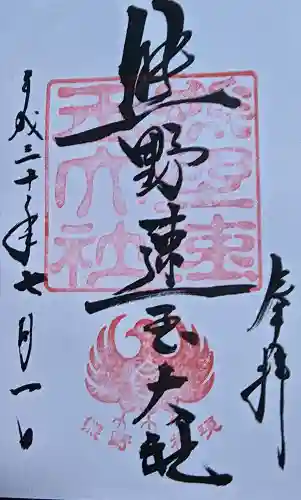 奉拝
熊野速玉大社
熊野速
玉大社
熊野権現
平成三十年七月一日